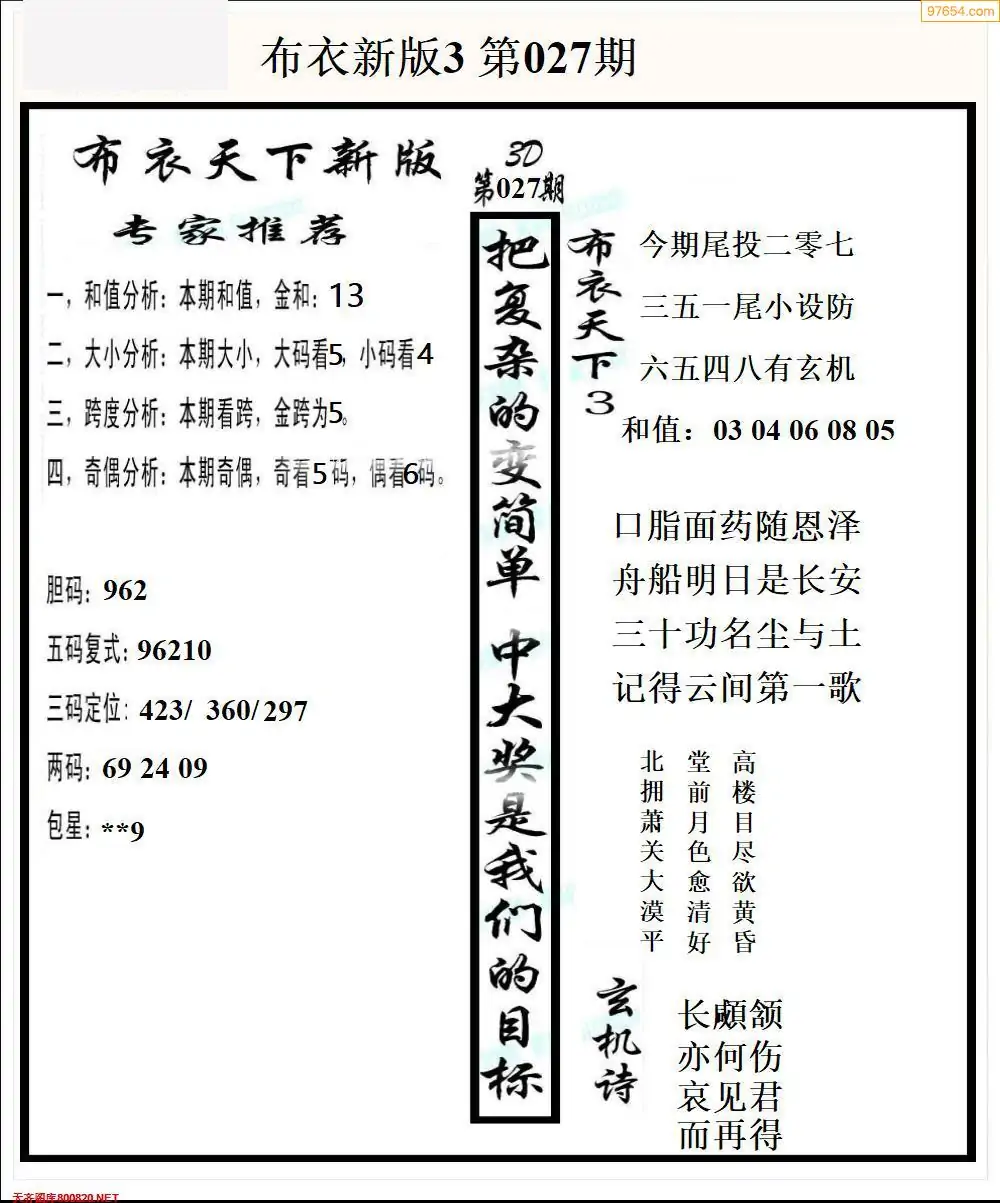 97654.com
布衣新版3 第027期
布衣天下新版
专家推荐
一，和值分析：本期和值，金和：13
二，大小分析：本期大小，大码看5，小码看4
三，跨度分析：本期看跨，金跨为5。
四，奇偶分析：本期奇偶，奇看5码，偶看6码。
胆码：962
五码复式：96210
三码定位：423/ 360/297
两码：69 24 09
包星：**9
3D
第027期
把复杂的变简单 中大奖是我们的目标
布衣天下3
今期尾投二零七
三五一尾小设防
六五四八有玄机
和值：03 04 06 08 05
口脂面药随恩泽
舟船明日是长安
三十功名尘与土
记得云间第一歌
高楼目尽欲黄昏
堂前月色愈清好
北拥萧关大漠平
玄机诗
长顑颔
亦何伤
哀见君
而再得
天齐图库800820.NET